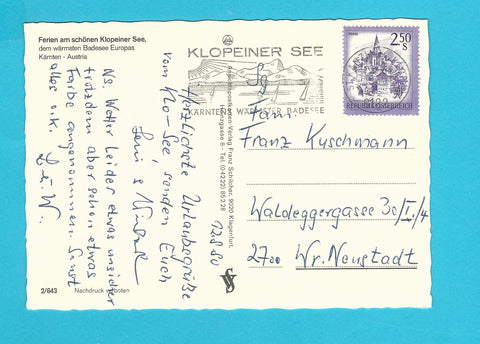 Ferien am schönen Klopeiner See,
dem wärmsten Badesee Europas
Kärnten - Austria
12.8.80
Herzlichste Urlaubsgrüße
vom Klo-See, senden Euch
NS. Wetter leider etwas unsicher
trotzdem aber schon etwas
Farbe angenommen. Sonst
alles ok.
2/643
Nachdruck verboten
Ansichtskarten-Verlag Franz Schilcher, 9020 Klagenfurt,
KLOPEINER SEE
KÄRNTENS WÄRMSTER BADESEE
2.50
S
REPUBLIK ÖSTERREICH
Fam.
Franz Kuschmann
Waldeggergasse 3c/I./4
2700 Wr. Neustadt